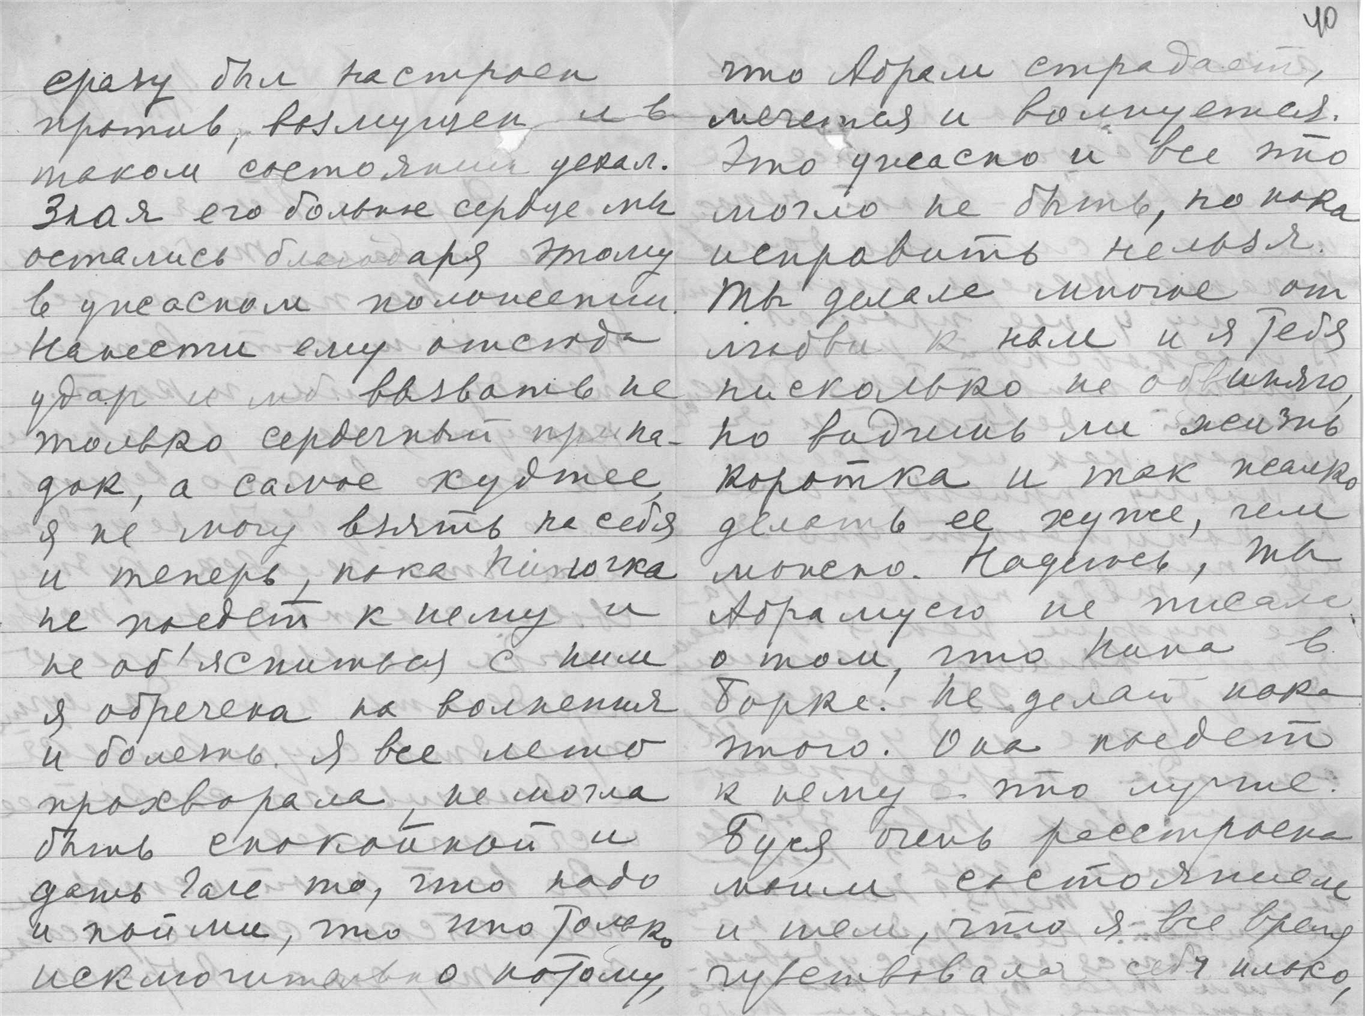 40
сразу был настроен
против, возмущен и в
таком состоянии уехал.
Зная его больное сердце мы
остались благодаря этому
в ужасном положении.
Нанести ему отсюда
удар и вызвать не
только сердечный припа-
док, а самое худшее,
я не могу взять на себя
и теперь, пока Ниночка
не поедет к нему и
не об'ясниться с ним
я обречена на волнения
и болезнь. Я все лето
прохворала, не могла
быть спокойной и
дать Гале то, что надо
и пойми, что это только
исключительно потому,
что Абрам страдает,
мечется и волнуется.
Это ужасно и все это
могло не быть, но пока
исправить нельзя.
Ты делала многое от
любви к нам и я тебя
нисколько не обвиняю,
но видишь ли жизнь
коротка и так жалко
делать ее хуже, чем
можно. Надеюсь, ты
Абрамусю не писала
о том, что Нина в
Борке! Не делай пока
этого. Она поедет
к нему – это лучше.
Буся очень расстроена
моим состоянием
и тем, что я все время
чувствовала себя плохо,